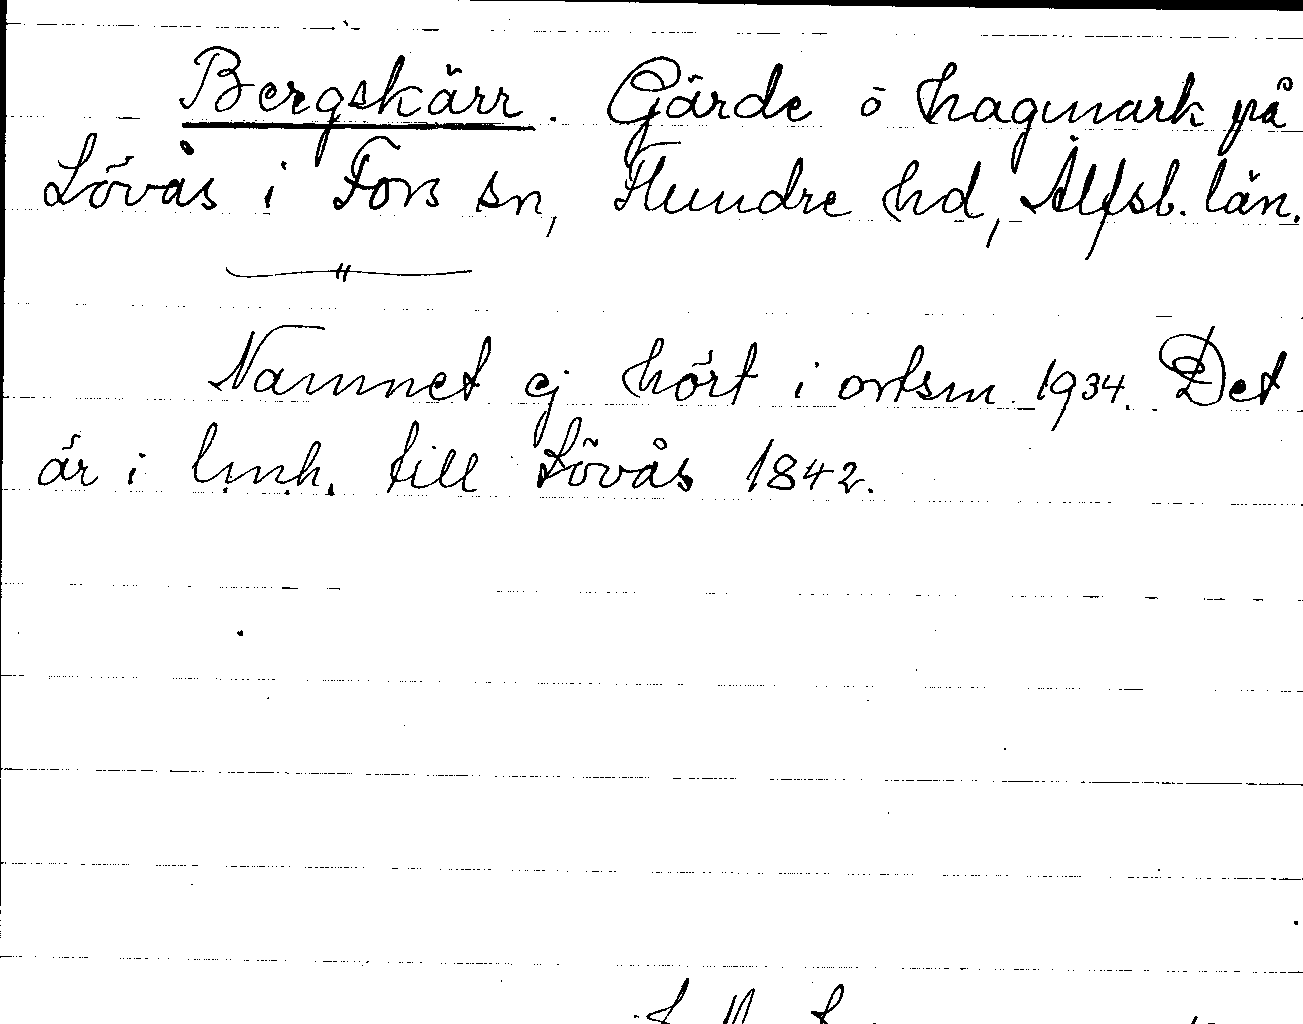 Bergskärr. Gärde ō hagmark på
Lövås i Fors sn, Flundre hd, Älfsb. län.
Namnet ej hört i ortsm 1934. Det
är i l.m.h. till Lövås 1842.